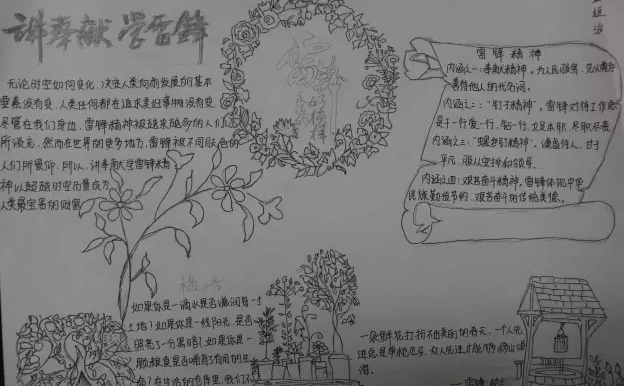 讲奉献 学雷锋
无论时空如何变化,决定人类向前发展的基本
要素没有变,人类任何都在追求美好事物没有变
尽管在我们身边,雷锋精神被越来越多的人们
所淡忘,然而在世界的更多地方,雷锋被不同肤色的
人们所景仰,所以,讲奉献学雷锋精
神以超越时空而量成为
人类最宝贵的财富
雷锋
好榜样
雷锋精神
内涵之一:奉献精神。为人民服务,
善待他人的代名词。
内涵之二:“钉子精神”。雷锋对待工作总
是干一行爱一行,钻一行,立足本职,尽职尽责
内涵之三:“螺丝钉精神”。谦虚待人,甘于
平凡,服从安排和领导。
内涵之四:艰苦奋斗精神。雷锋体现中华
民族勤俭节约,艰苦奋斗的传统美德。
格言
如果你是一滴水是否滋润了一寸
土地?如果你是一线阳光,是否
照亮了一分黑暗?如果你是一
颗粮食是否哺育了有用的生
命?在生活的仓库里,我们不
一朵鲜花打扮不出美丽的春天,一个人先
进总是单枪匹马,众人先进才能移山填
海。
雷锋